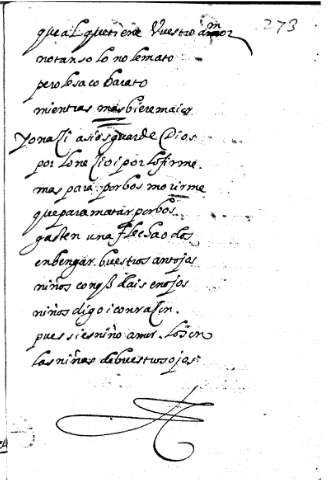 273
que al que tiene Vuestro amor
no tan solo no le mato
pero le saco barato
mientras mas biere maior
Yo naci asi os guarde Dios
por lo necio i por lo firme
mas para por bos morirme
que para matar por bos
gasten una flecha o dos
en bengar buestros antojos
niños con q̃ dais enojos
niños digo i con raçon
pues si es niño amor lo son
las niñas de buestros ojos